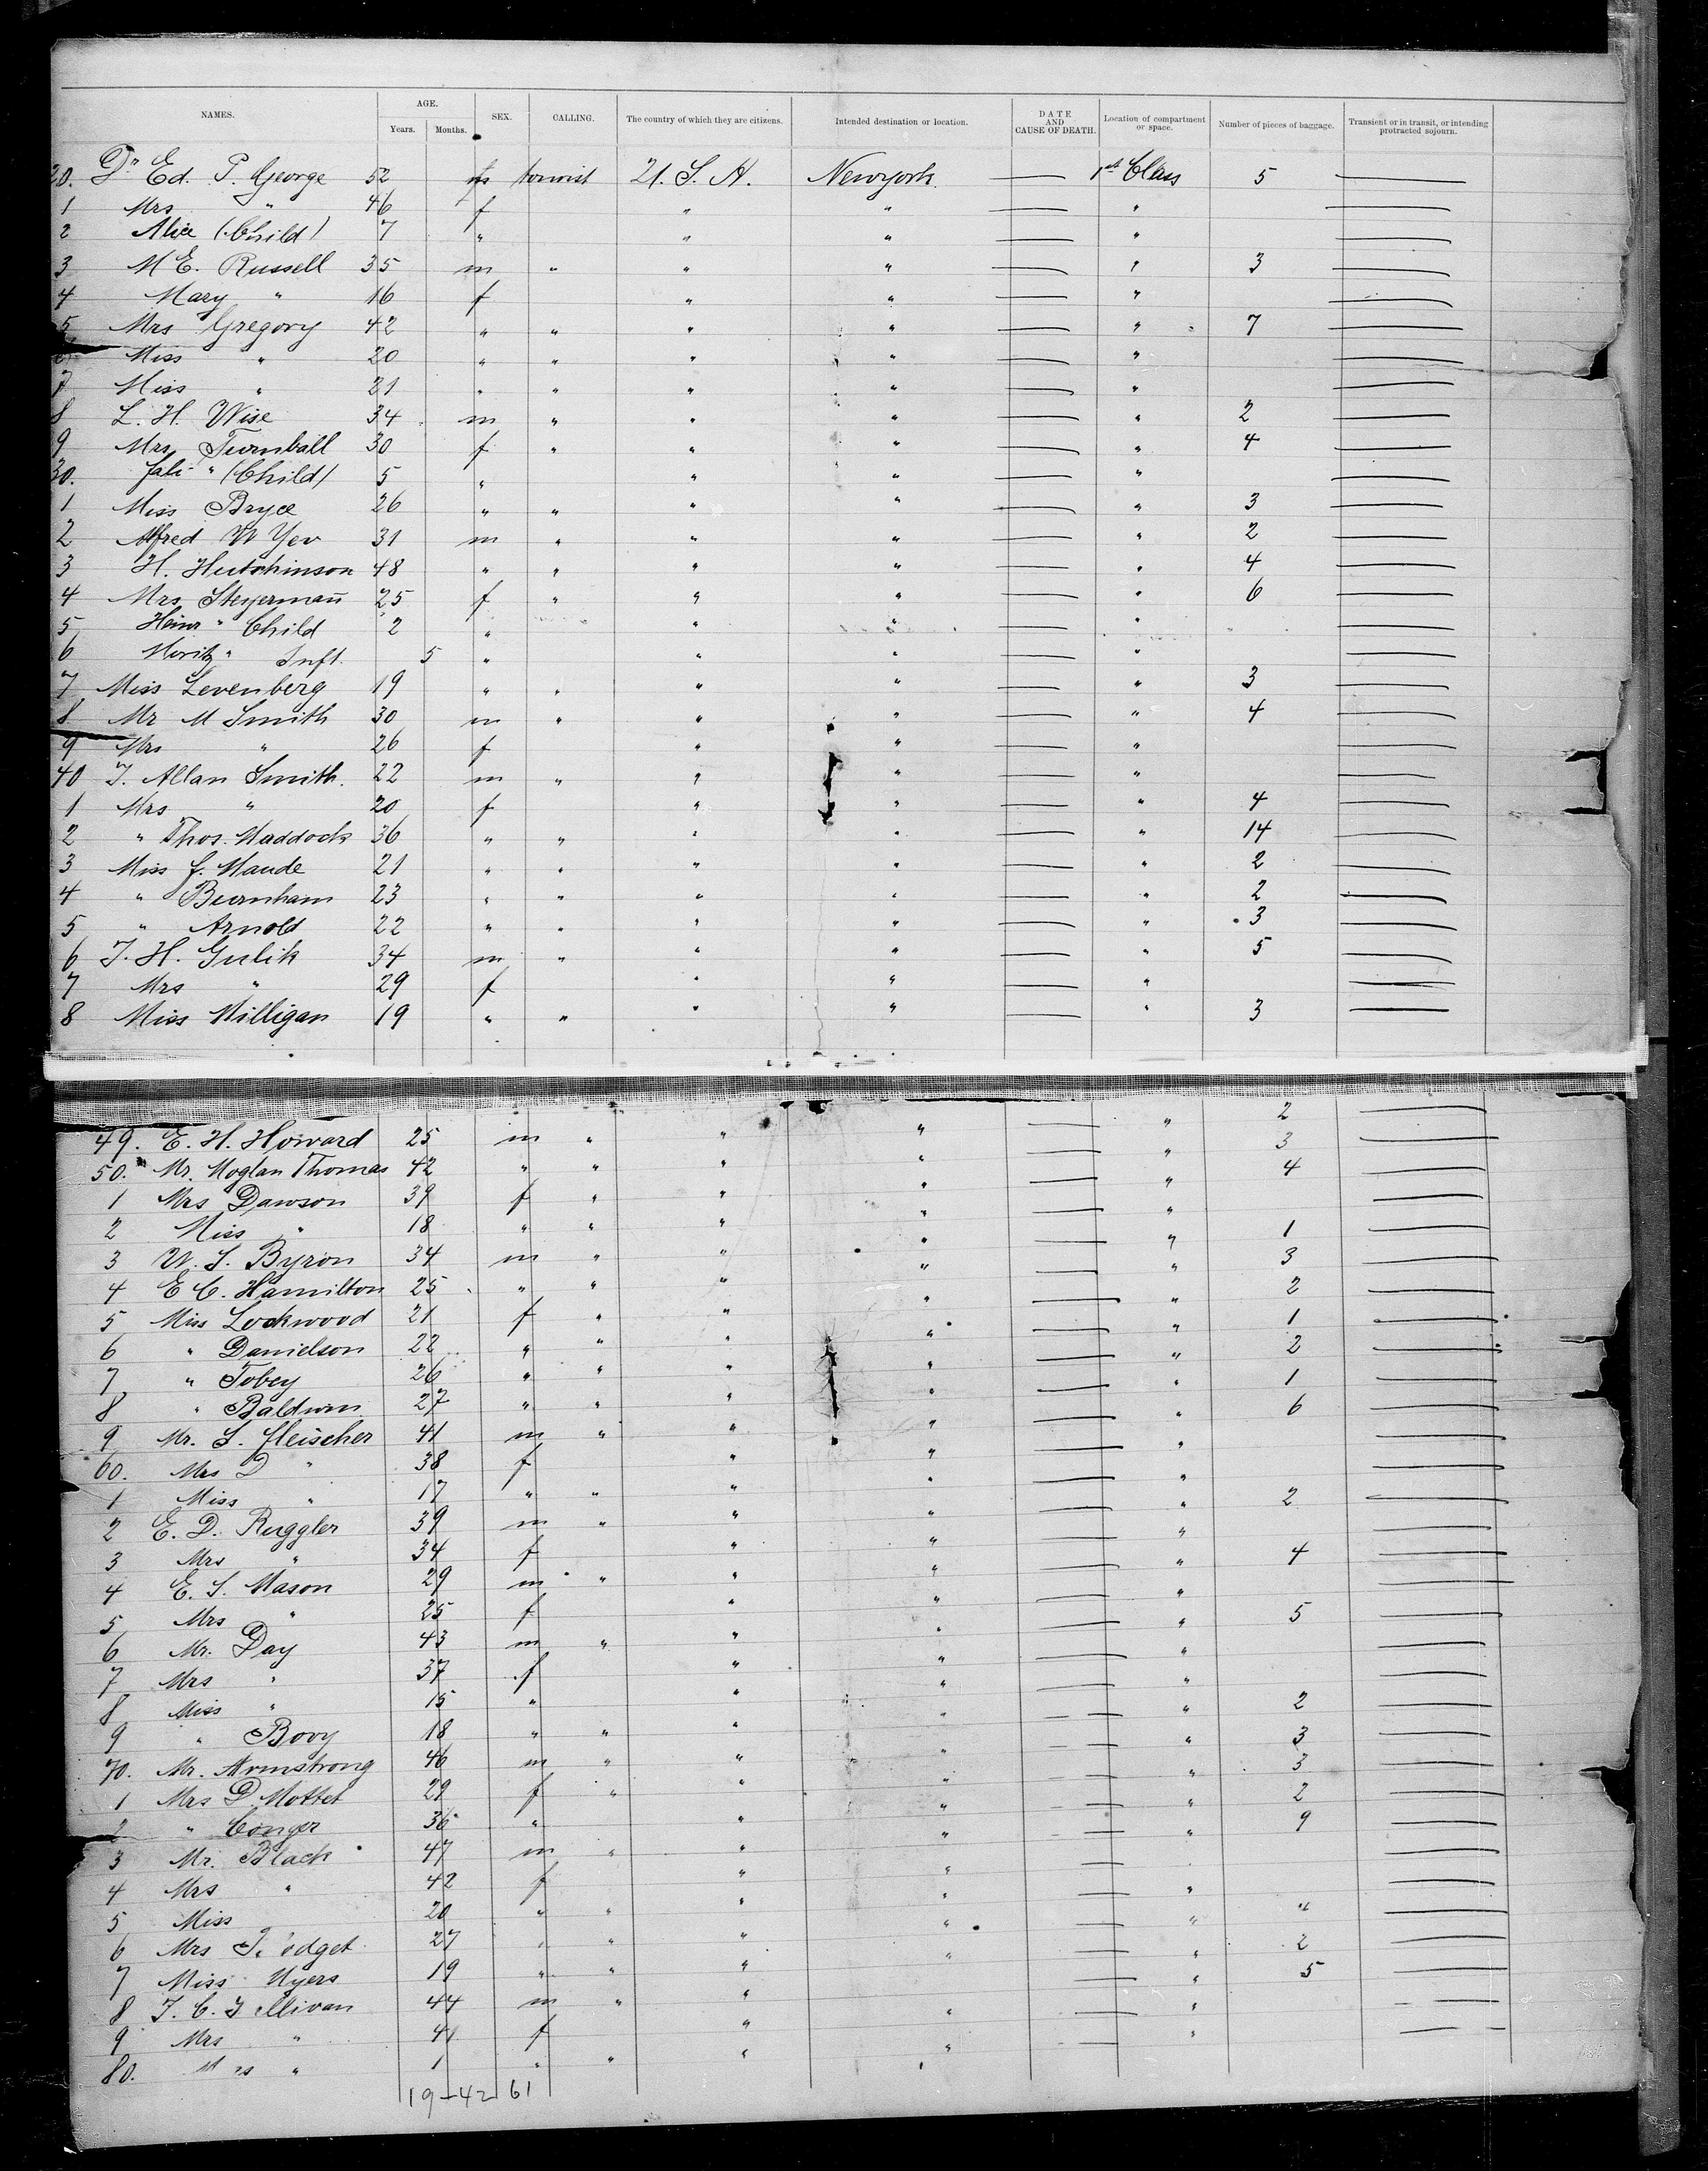 NAMES. AGE. Years. Months. SEX. CALLING. The country of which they are citizens. Intended destination or location. DATE AND CAUSE OF DEATH. Location of compartment or space. Number of pieces of baggage. Transient or in transit, or intending protracted sojourn.
20. Dr Ed. P. George 52 m tourist U. S. A. Newyork — 1st Class 5 —
1 Mrs " 46 f " " — " —
2 Alice (Child) 7 " " " — " —
3 M E. Russell 35 m " " " — " 3 —
4 Mary " 16 f " " — " —
5 Mrs Gregory 42 " " " " — " 7 —
6 Miss " 20 " " " " — " —
7 Miss " 21 " " " " — " —
8 L. H. Wise 34 m " " " — " 2 —
9 Mrs Turnball 30 f " " " — " 4 —
30. " (Child) 5 " " " — " —
1 Miss Bryce 26 " " " " — " 3 —
2 Alfred W Yev 31 m " " " — " 2 —
3 H. Hutchinson 48 " " " " — " 4 —
4 Mrs Steyermann 25 f " " " — " 6 —
5 Heinr " Child 2 " " " — " —
6 Moritz " Inft. 5 " " " — " —
7 Miss Levenberg 19 " " " " — " 3 —
8 Mr M Smith 30 m " " " — " 4 —
9 Mrs " 26 f " " — " —
40 T. Allan Smith. 22 m " " " — " —
1 Mrs " 20 f " " — " 4 —
2 " Thos. Maddock 36 " " " " — " 14 —
3 Miss J. Maude 21 " " " " — " 2 —
4 " Burnham 23 " " " " — " 2 —
5 " Arnold 22 " " " " — " 3 —
6 T. H. Gulik 34 m " " " — " 5 —
7 Mrs " 29 f " " — " —
8 Miss Milligan 19 " " " " — " 3 —
49. E. H. Howard 25 m " " " — " 2 —
50. Mr. Moglan Thomas 42 " " " " — " 3 —
1 Mrs Dawson 39 f " " " — " 4 —
2 Miss " 18 " " " " — " —
3 W. S. Byron 34 m " " " — " 1 —
4 E C. Hamilton 25 " " " " — " 3 —
5 Miss Lockwood 21 f " " " — " 2 —
6 " Danielson 22 " " " " — " 1 —
7 " Tobey 26 " " " " — " 2 —
8 " Baldwin 27 " " " " — " 1 —
9 Mr. S. Fleischer 41 m " " " — " 6 —
60. Mrs D " 38 f " " — " —
1 Miss " 17 " " " " — " —
2 E. D. Ruggler 39 m " " " — " 2 —
3 Mrs " 34 f " " — " —
4 E. S. Mason 29 m " " " — " 4 —
5 Mrs " 25 f " " — " —
6 Mr. Day 43 m " " " — " 5 —
7 Mrs " 37 f " " — " —
8 Miss " 15 " " " — " —
9 " Bovy 18 " " " " — " 2 —
70. Mr. Armstrong 46 m " " " — " 3 —
1 Mrs D. Mottet 29 f " " " — " 3 —
2 " Conger 36 " " " — " 2 —
3 Mr. Black 47 m " " " — " 9 —
4 Mrs " 42 f " " — —
5 Miss 20 " " " " — " —
6 Mrs 27 " " " " — " " —
7 Miss Myers 19 " " " " — " 2 —
8 T. C. 44 m " " " — " 5 —
9 Mrs " 41 f " " — " —
80. " 1 " " " " — " —
19 – 42 61